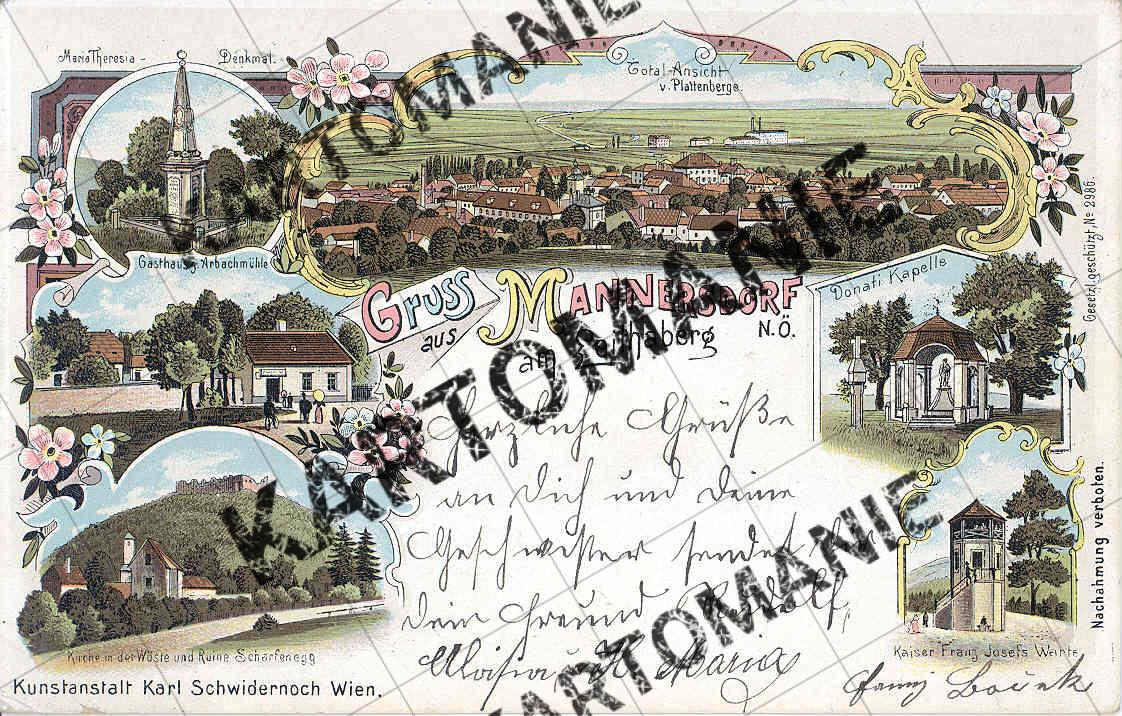 Maria Theresia - Denkmal.
Total-Ansicht
v. Plattenberge.
Gasthaus z. Arbachmühle
Gruss
aus
Mannersdorf
am Leithaberg
N.Ö.
Donati Kapelle
Gesetzl. geschützt, No 2986.
Herzliche Grüße
an Dich und deine
Geschwister sendet
dein Freund Rudolf,
Maria
Fanny
Kirche in der Wüste und Ruine Scharfenegg
Kaiser Franz Josefs Warte.
Nachahmung verboten.
Kunstanstalt Karl Schwidernoch Wien.
KARTOMANIE
KARTOMANIE
KARTOMANIE
KARTOMANIE